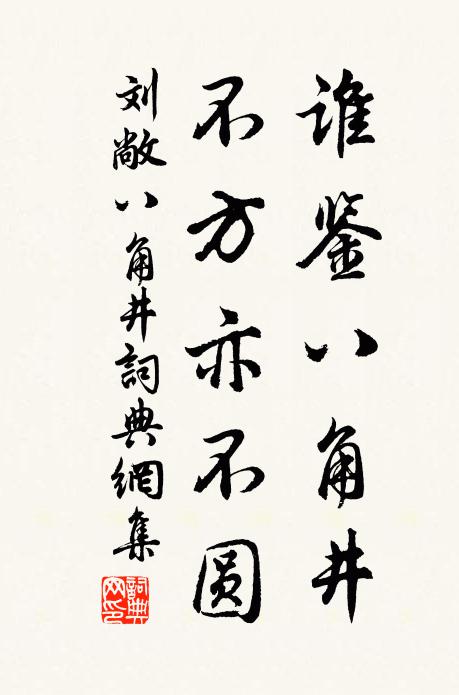 谁鉴八角井
不方亦不圆
刘敞八角井詞典網集
詞典网印